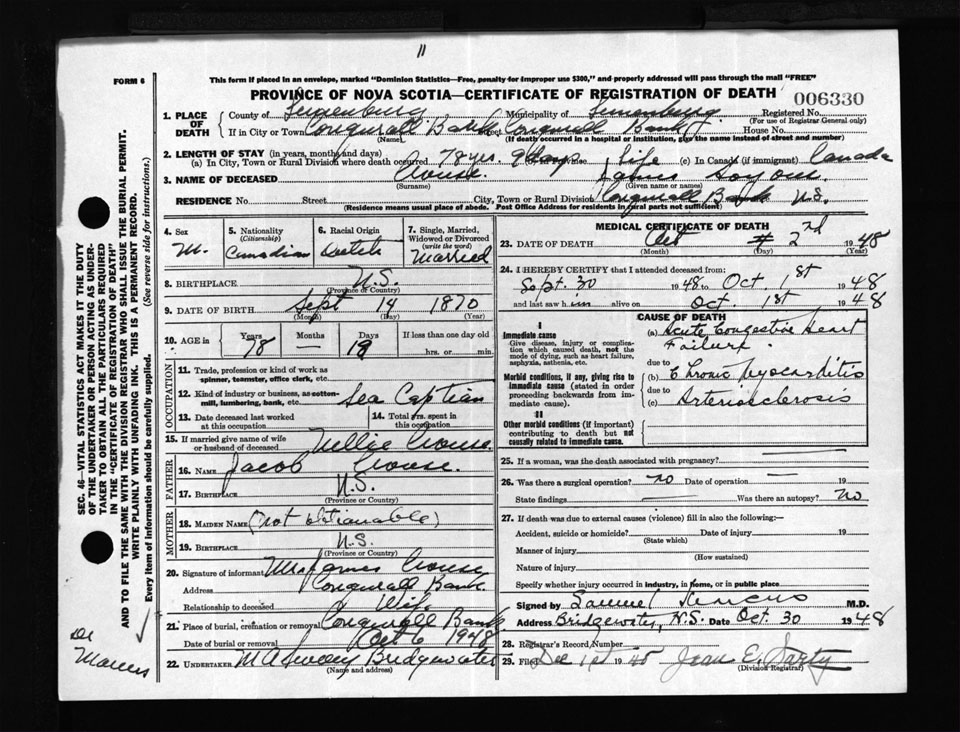 11
FORM 6
This form if placed in an envelope, marked "Dominion Statistics—Free, penalty for improper use $300," and properly addressed will pass through the mail "FREE"
PROVINCE OF NOVA SCOTIA—CERTIFICATE OF REGISTRATION OF DEATH
006330
1. PLACE OF DEATH
County of Lunenburg Municipality of Lunenburg Registered No.
(For use of Registrar General only)
If in City or Town Conquerall Bank Conquerall Bank House No.
(Name) (If death occurred in a hospital or institution, give the name instead of street and number)
2. LENGTH OF STAY (in years, months and days)
(a) In City, Town or Rural Division where death occurred 78 yrs. Life (c) In Canada (if immigrant) Canada
3. NAME OF DECEASED Crouse. James
(Surname) (Given name or names)
RESIDENCE No. Street City, Town or Rural Division Conquerall Bank N.S.
(Residence means usual place of abode. Post Office Address for residents in rural parts not sufficient)
4. Sex
M.
5. Nationality
(Citizenship)
Canadian
6. Racial Origin
7. Single, Married, Widowed or Divorced
(write the word)
Married
8. BIRTHPLACE N.S.
(Province or Country)
9. DATE OF BIRTH Sept 14 1870
(Month) (Day) (Year)
10. AGE in Years Months Days If less than one day old
78 — 18 hrs. or min.
OCCUPATION
11. Trade, profession or kind of work as spinner, teamster, office clerk, etc.
12. Kind of industry or business, as cotton-mill, lumbering, bank, etc. Sea Captian
13. Date deceased last worked at this occupation
14. Total yrs. spent in this occupation
15. If married give name of wife or husband of deceased Nellie Crouse.
FATHER
16. NAME Jacob Crouse.
17. BIRTHPLACE N.S.
(Province or Country)
MOTHER
18. MAIDEN NAME (not obtianable)
19. BIRTHPLACE N.S.
(Province or Country)
20. Signature of informant Mrs James Crouse
Address Conquerall Bank.
Relationship to deceased Wife
21. Place of burial, cremation or removal Conquerall Bank
Date of burial or removal Oct 6 1948
22. UNDERTAKER Bridgewater
(Name and address)
MEDICAL CERTIFICATE OF DEATH
23. DATE OF DEATH Oct 2nd 1948
(Month) (Day) (Year)
24. I HEREBY CERTIFY that I attended deceased from:
Sept. 30 1948 to Oct. 1st 1948
and last saw him alive on Oct. 1st 1948
CAUSE OF DEATH
I
Immediate cause
Give disease, injury or complication which caused death, not the mode of dying, such as heart failure, asphyxia, asthenia, etc.
(a) Acute Congestive Heart Failure.
due to
Morbid conditions, if any, giving rise to immediate cause (stated in order proceeding backwards from immediate cause).
(b) Chronic Myocarditis
due to
(c) Arteriosclerosis
II
Other morbid conditions (if important) contributing to death but not causally related to immediate cause.
25. If a woman, was the death associated with pregnancy?
26. Was there a surgical operation? no Date of operation 19
State findings Was there an autopsy? no
27. If death was due to external causes (violence) fill in also the following:—
Accident, suicide or homicide? Date of injury 19
(State which)
Manner of injury
(How sustained)
Nature of injury
Specify whether injury occurred in industry, in home, or in public place
Signed by Samuel Marcus M.D.
Address Bridgewater, N.S. Date Oct. 30 1948
28. Registrar's Record Number
29. Filed Dec 1st 1948 Jean E.
(Division Registrar)
SEC. 46—VITAL STATISTICS ACT MAKES IT THE DUTY
OF THE UNDERTAKER OR PERSON ACTING AS UNDER-
TAKER TO OBTAIN ALL THE PARTICULARS REQUIRED
IN THE "CERTIFICATE OF REGISTRATION OF DEATH"
AND TO FILE THE SAME WITH THE DIVISION REGISTRAR WHO SHALL ISSUE THE BURIAL PERMIT.
WRITE PLAINLY WITH UNFADING INK. THIS IS A PERMANENT RECORD.
Every item of information should be carefully supplied. (See reverse side for instructions.)
Dr Marcus